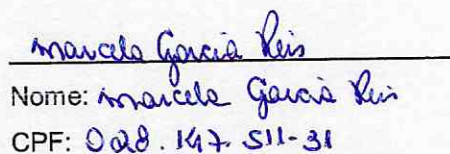 Marcela Garcia Reis
Nome: Marcela Garcia Reis
CPF: 028.147.511-31